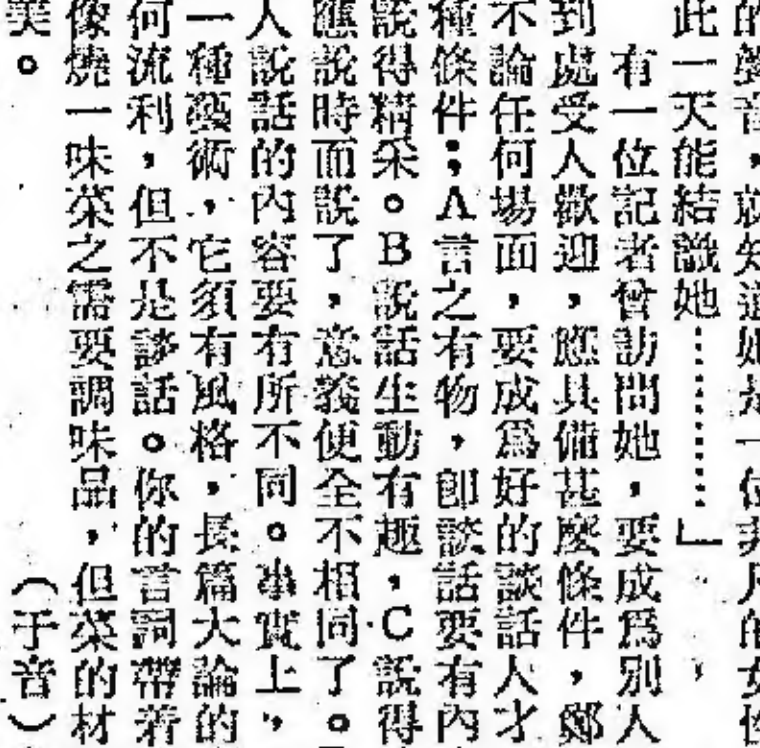 的聲音，就知道她是一位非凡的女性
此一天能結識她………」，
有一位記者曾訪問她，要成爲別人
到處受人歡迎，應具備甚麼條件，鄭
不論任何場面，要成爲好的談話人才
種條件；A言之有物，卽談話要有內
說得精采。B說話生動有趣，C說得
應說時而說了，意義便全不相同了。
人說話的內容要有所不同。事實上，
一種藝術，它須有風格，長篇大論的
何流利，但不是談話。你的言詞帶着
像燒一味菜之需要調味品，但菜的材
美。
（于音）